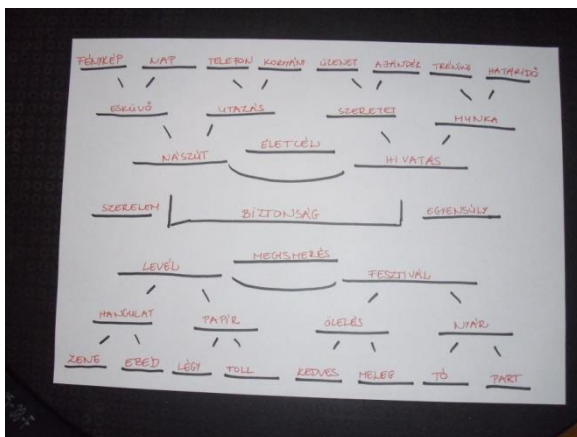 FÉNYKÉP NAP TELEFON KORMÁNY ÜZENET AJÁNDÉK TRÉNING HATÁRIDŐ
ESKÜVŐ UTAZÁS SZERETET MUNKA
NÁSZÚT ÉLETCÉL HIVATÁS
SZERELEM BIZTONSÁG EGYENSÚLY
LEVÉL MEGISMERÉS FESZTIVÁL
HANGULAT PAPÍR ÖLELÉS NYÁR
ZENE EBÉD LÉGY TOLL KEDVES MELEG TÓ PART